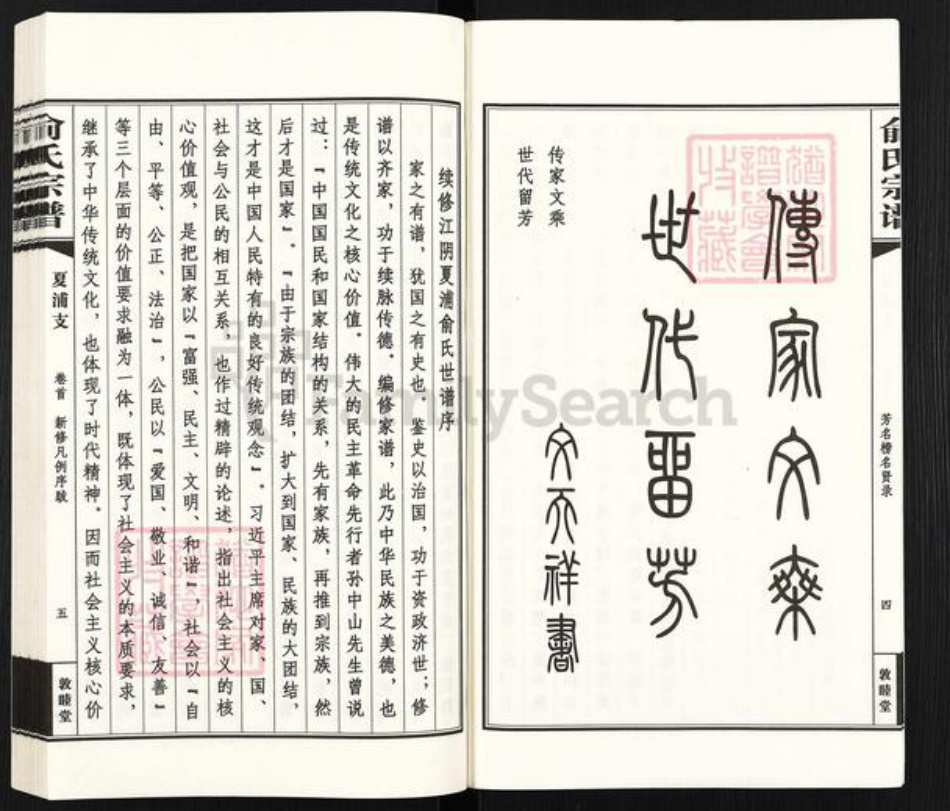 俞氏宗谱
芳名榜名贤录
四
敦睦堂
傳家文乘
世代留芳
文天祥書
传家文乘
世代留芳
续修江阴夏浦俞氏世谱序
家之有谱，犹国之有史也。鉴史以治国，功于资政济世；修
谱以齐家，功于续脉传德。编修家谱，此乃中华民族之美德，也
是传统文化之核心价值。伟大的民主革命先行者孙中山先生曾说
过：“中国国民和国家结构的关系，先有家族，再推到宗族，然
后才是国家”。“由于宗族的团结，扩大到国家、民族的大团结，
这才是中国人民特有的良好传统观念”。习近平主席对家、国、
社会与公民的相互关系，也作过精辟的论述，指出社会主义的核
心价值观，是把国家以“富强、民主、文明、和谐”，社会以“自
由、平等、公正、法治”，公民以“爱国、敬业、诚信、友善”
等三个层面的价值要求融为一体，既体现了社会主义的本质要求，
继承了中华传统文化，也体现了时代精神。因而社会主义核心价
俞氏宗谱
夏浦支
卷首 新修凡例序跋
五
敦睦堂
FamilySearch